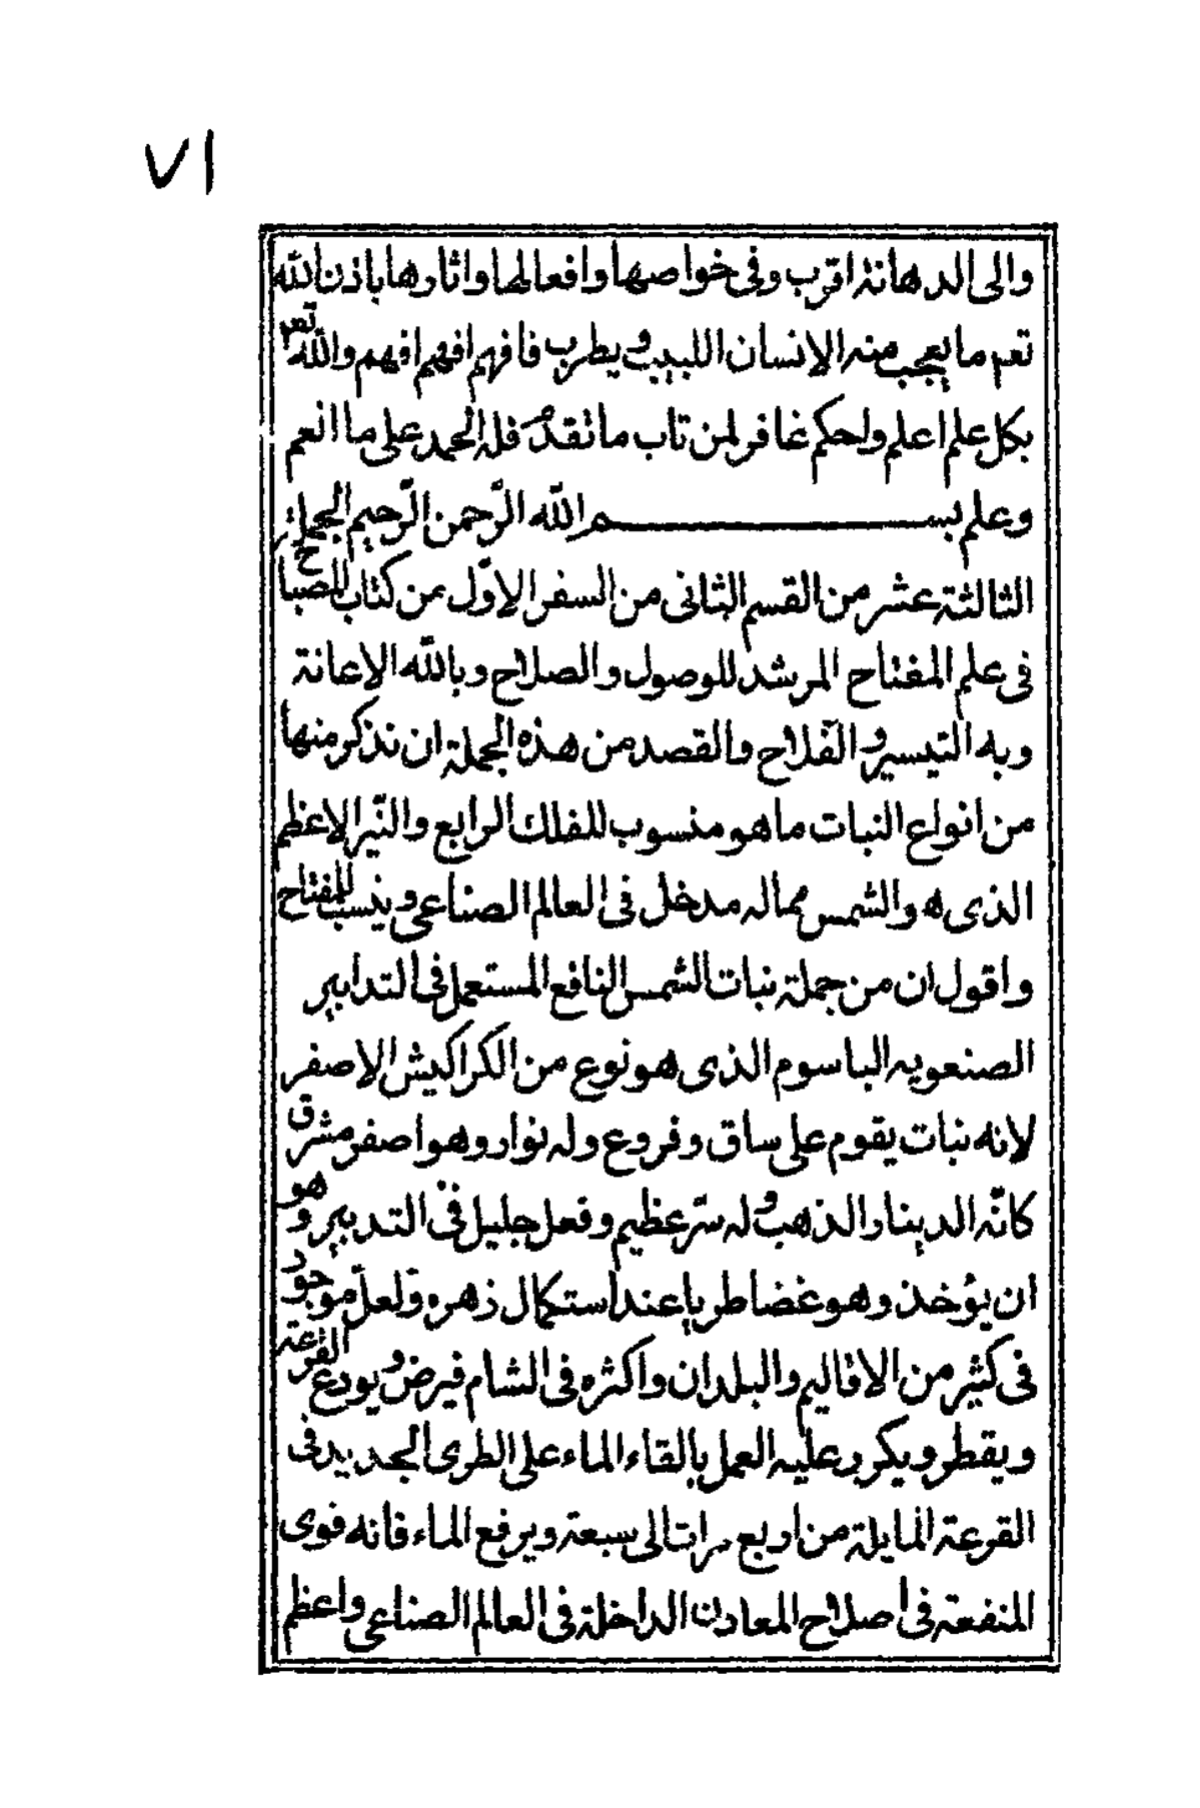 ٧١
والى الدهانة اقرب وفى خواصها وافعالها واثارها باذن الله
تعم ما يعجب منه الانسان اللبيب ويطرب فافهم افهم افهم والله تعم
بكل علم اعلم واحكم غافر لمن تاب ما تقدم فله الحمد على ما انعم
وعلم بسم الله الرّحمن الرّحيم الجملة
الثالثة عشر من القسم الثانى من السفر الاوّل من كتاب المصباح
فى علم المفتاح المرشد للوصول والصلاح وبالله الاعانة
وبه التيسير والفلاح والقصد من هذه الجملة ان نذكر منها
من انواع النبات ما هو منسوب للفلك الرابع والنّير الاعظم
الذى هو الشمس مما له مدخل فى العالم الصناعى وينسب للمفتاح
واقول ان من جملة نبات الشمس النافع المستعمل فى التدابير
الصنعويه الباسوم الذى هو نوع من الكراكيش الاصفر
لانه نبات يقوم على ساق وفروع وله نوار وهو اصفر مشرق
كانّه الدينار الذهب وله سّر عظيم وفعل جليل فى التدبير وهو
ان يؤخذ وهو غضا طريا عند استكمال زهره ولعلّ موجود
فى كثير من الاقاليم والبلدان واكثره فى الشام فيرض ويودع القرعة
ويقطر ويكرر عليه العمل بالقاء الماء على الطرى الجديد فى
القرعة المايلة من اربع مرات الى سبعة ويرفع الماء فانه قوى
المنفعة فى اصلاح المعادن الداخلة فى العالم الصناعى واعظم